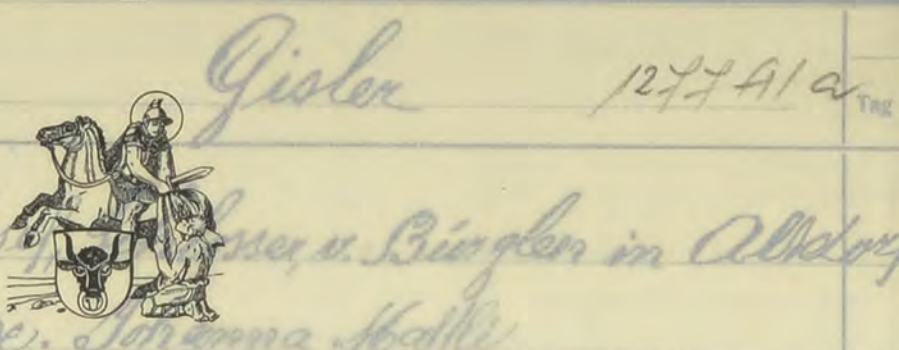 Gisler 1277 A1 a
Tag
v. Bürglen in Altdorf
Johanna